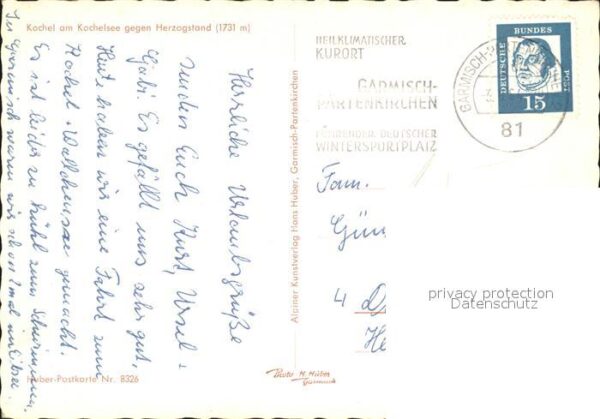 Kochel am Kochelsee gegen Herzogstand (1731 m)
Herzliche Urlaubsgrüße
senden Euch Kurt, Ursel +
Gabi. Es gefällt uns sehr gut.
Heute haben wir eine Fahrt zum
Kochel + Walchensee gemacht.
Es ist leider zu kühl zum Schwimmen.
In Garmisch waren wir schon 2mal
Huber-Postkarte Nr. 8326
Alpiner Kunstverlag Hans Huber, Garmisch-Partenkirchen
Photo H. Huber
Garmisch
HEILKLIMATISCHER
KURORT
GARMISCH-
PARTENKIRCHEN
FÜHRENDER DEUTSCHER
WINTERSPORTPLATZ
GARMISCH-P
81
DEUTSCHE
BUNDES
POST
15
Fam.
Gün
4 D
He
privacy protection
Datenschutz